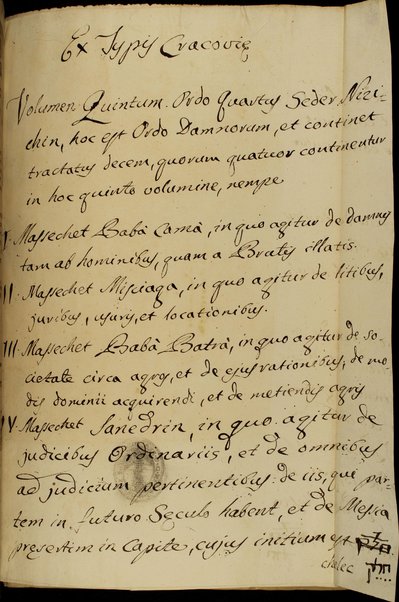 Ex Typis Cracovię
Volumen Quintum. Ordo Quartus Seder Nizi-
chin, hoc est Ordo Damnorum, et continet
tractatus decem, quorum quatuor continentur
in hoc quinto volumine, nempe
I. Massechet Babà Camà, in quo agitur de damnis
tam ab hominibus, quam a Brutis illatis.
II. Massechet Misiaga, in quo agitur de litibus,
juribus, usuris, et locationibus.
III. Massechet Babà Batrà, in quo agitur de so-
cietate circa agros, et de ejus rationibus, de mo-
dis dominii acquirendi, et de metiendis agris
IV. Massechet Sanedrin, in quo agitur de
judicibus Ordinariis, et de omnibus
ad judicium pertinentibus: de iis, qui par-
tem in futuro Seculo habent, et de Messia
presertim in Capite, cujus initium est
chelec חלק